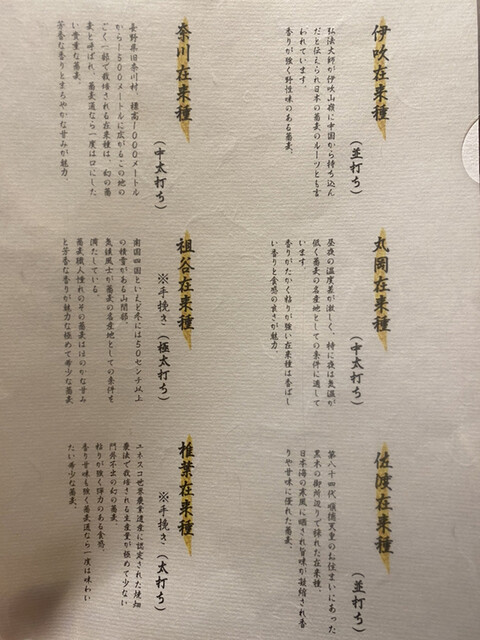 伊吹在来種
(並打ち)
弘法大師が伊吹山嶺に中国から持ち込ん
だと伝えられ日本の蕎麦のルーツとも言
われています。
香りが強く野性味のある蕎麦。
丸岡在来種
(中太打ち)
昼夜の温度差が激しく、特に夜は気温が
低く蕎麦の名産地としての条件に適して
います。
香りがたかく粘りが強い在来種は香ばし
い香りと食感の良さが魅力。
佐渡在来種
(並打ち)
第八十四代順徳天皇のお住まいにあった
黒木の御所辺りで採れた在来種
日本海の寒風に晒され旨味が凝縮され香
りや甘味に優れた蕎麦。
奈川在来種
(中太打ち)
長野県旧奈川村、標高1000メートル
から1500メートルに広がるこの地の
ごく一部で栽培される在来種は、幻の蕎
麦と呼ばれ、蕎麦通なら一度は口にした
い貴重な蕎麦。
芳香な香りとまろやかな甘みが魅力。
祖谷在来種
※手挽き(極太打ち)
南国四国といえど冬には50センチ以上
の積雪がある山間部。
気候風土が蕎麦の名産地としての条件を
満たしている
蕎麦職人憧れのその蕎麦はほのかな甘み
と芳香な香りが魅力な極めて希少な蕎麦
椎葉在来種
※手挽き(太打ち)
ユネスコ世界農業遺産に認定された焼畑
農法で栽培される生産量が極めて少ない
門外不出の幻の蕎麦。
粘りが強く弾力のある食感、
香り甘味も強く蕎麦通なら一度は味わい
たい希少な蕎麦。